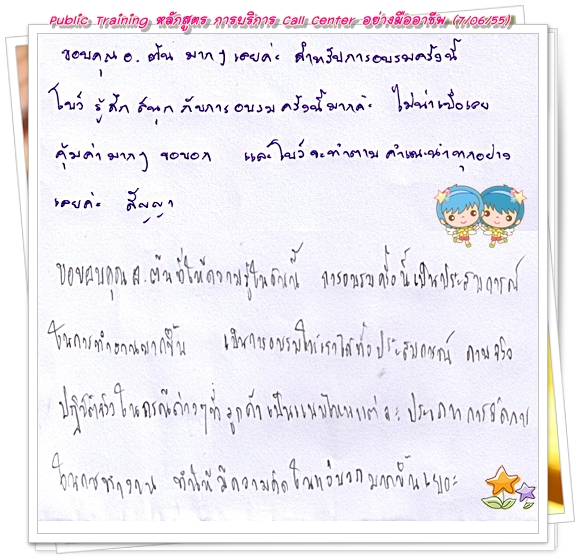 Public Training หลักสูตร การบริการ Call Center อย่างมืออาชีพ (7/06/55)
ขอบคุณ อ. ต้น มากๆ เลยค่ะ สำหรับการอบรมครั้งนี้
โบว์ รู้สึก สนุก กับการ อบรม ครั้งนี้ มากค่ะ ไม่น่าเบื่อเลย
คุ้มค่า มากๆ ขอบอก และโบว์จะทำตาม คำแนะนำทุกอย่าง
เลยค่ะ สัญญา
ขอขอบคุณ อ. ต้นที่ให้ความรู้ในวันนี้ การอบรมครั้งนี้เป็นประสบการณ์
ในการทำงานมากขึ้น เป็นการอบรมให้เราได้ทั้งประสบการณ์ ความจริง
ปฏิบัติจริง ในกรณีต่างๆที่ ลูกค้า เป็นแบบไหน แต่ละ ประเภท การจัดการ
ในการทำงาน ทำให้มีความคิดในแง่บวก มากขึ้นเยอะ